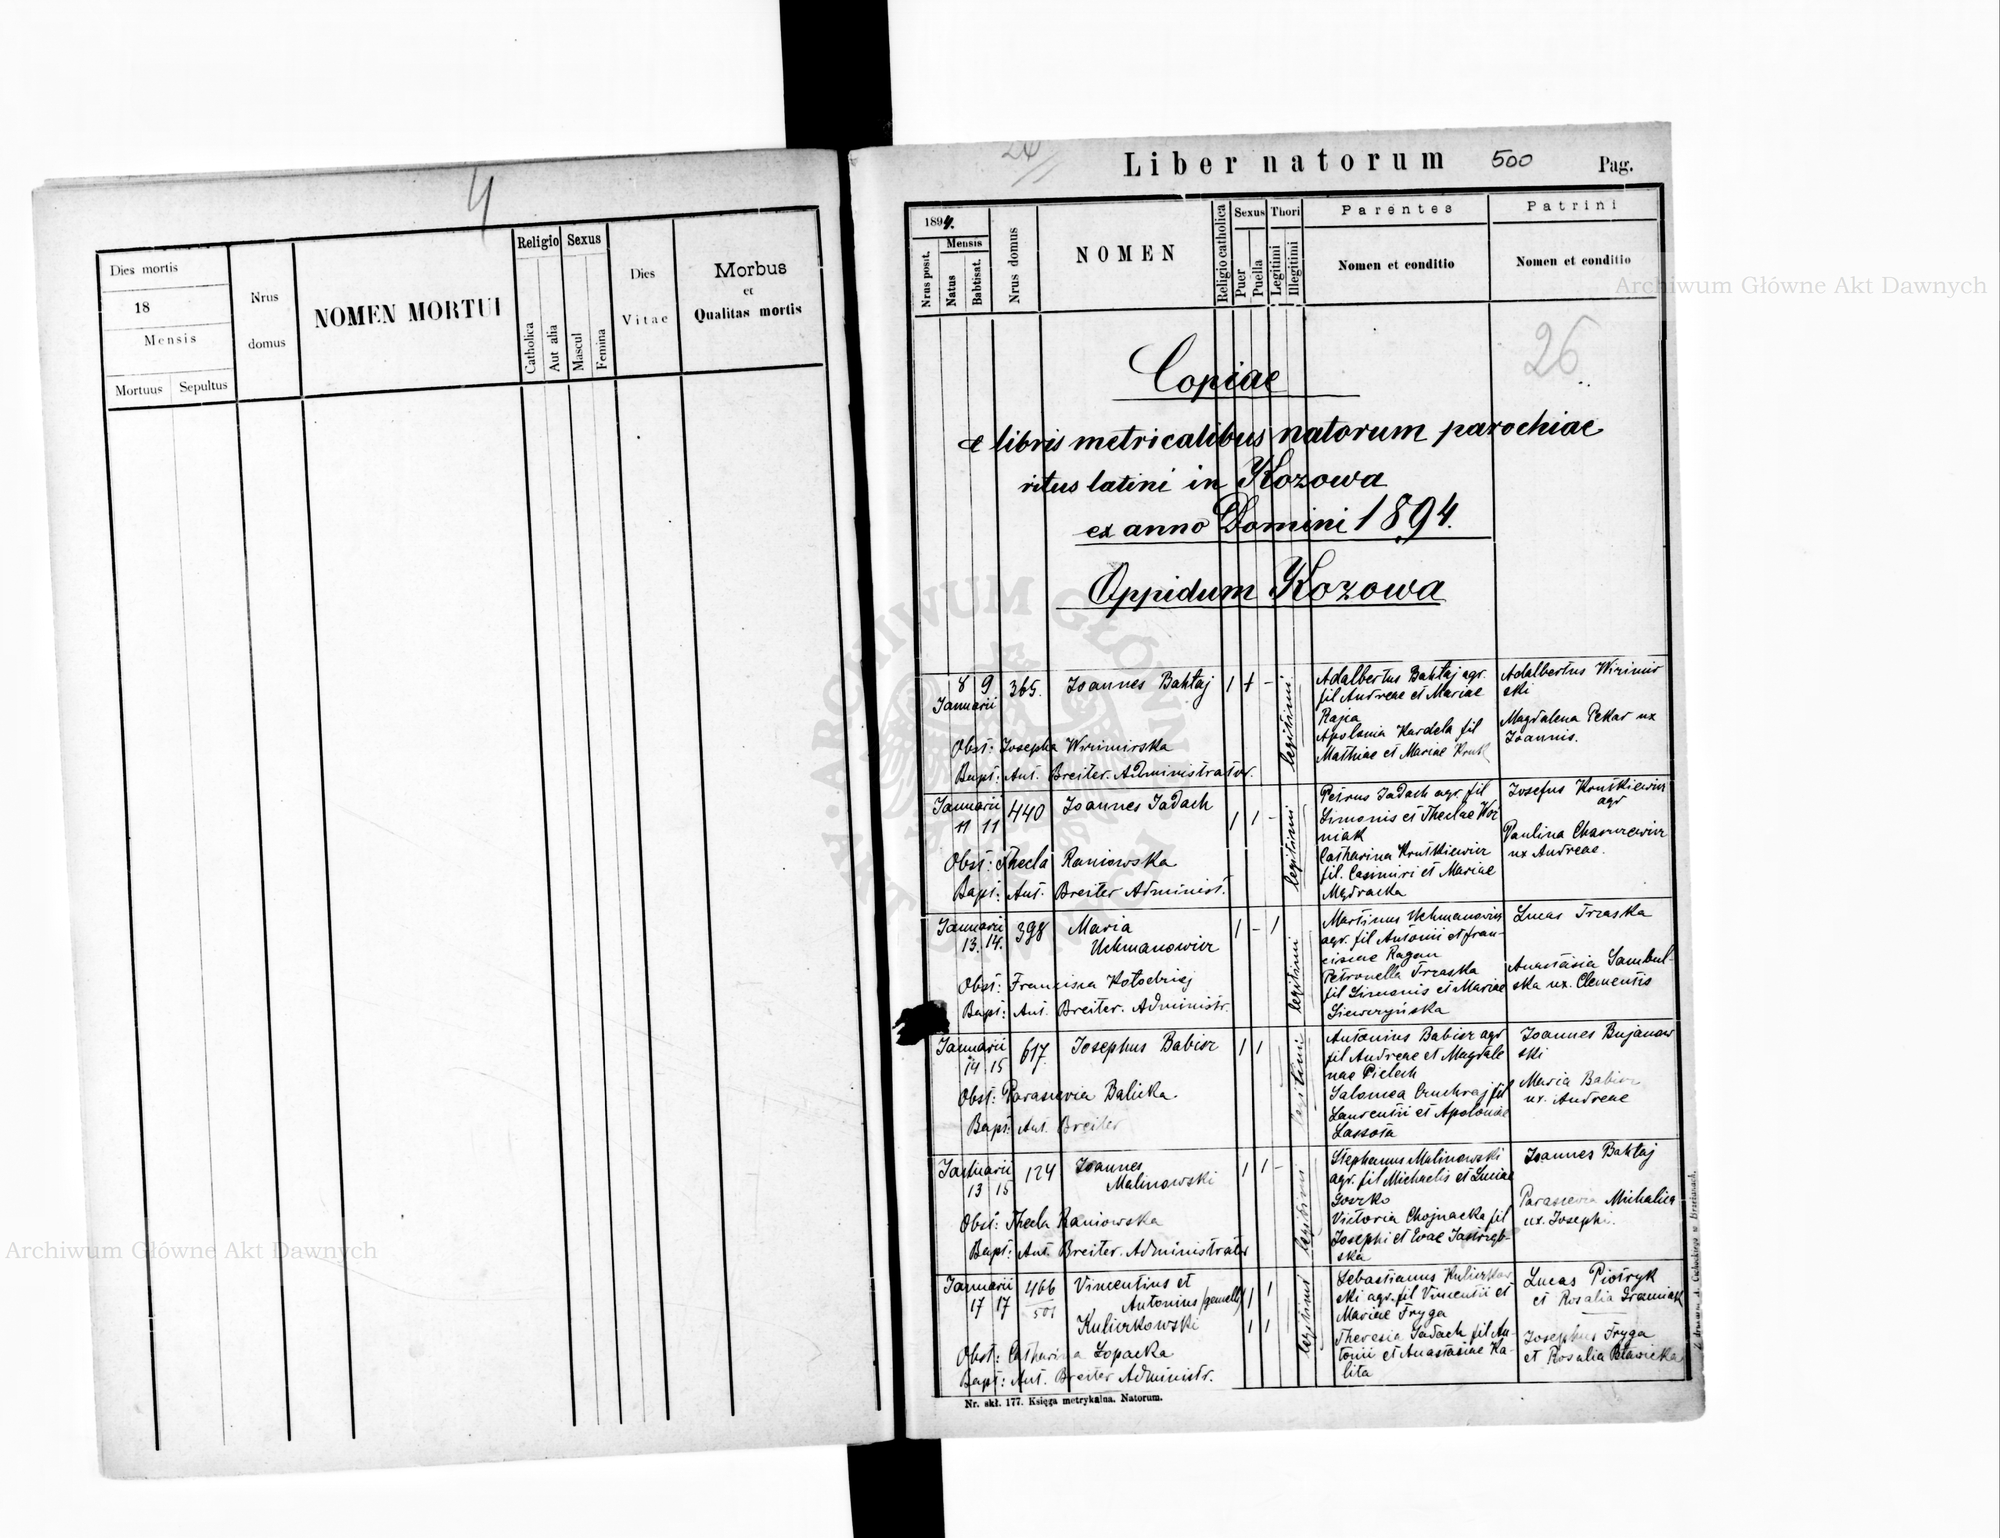 4
Dies mortis
18
Mensis
Mortuus Sepultus
Nrus domus
NOMEN MORTUI
Religio
Catholica
Aut alia
Sexus
Mascul
Femina
Dies Vitae
Morbus
et
Qualitas mortis
Liber natorum 500 Pag.
1894.
Nrus posit.
Mensis
Natus
Babtisat.
Nrus domus
NOMEN
Religio catholica
Sexus
Puer
Puella
Thori
Legitimi
Illegitimi
Parentes
Nomen et conditio
Patrini
Nomen et conditio
26
Copiae
e libris metricalibus natorum parochiae
ritus latini in Kozowa
ex anno Domini 1894.
Oppidum Kozowa
8 9 365. Joannes Bahtaj 1 + -
Januarii
legitimi
Obst: Josepha Wirimirska
Bapt: Ant. Breiter. Administrator.
Adalbertus Bahtaj agr.
fil Andreae et Mariae
Rapa
Apolonia Kardela fil
Mathiae et Mariae
Adalbertus Wirimir
ski
Magdalena Pekar ux
Joannis.
Januarii 440 Joannes Jadach 1 1 -
11 11
legitimi
Obst: Thecla Raniowska
Bapt: Ant. Breiter Administ.
Petrus Jadach agr. fil
Simonis et Theclae Woź
niak
Catharina Krutkiewicz
fil. Casimiri et Mariae
Mądracka
Josefus Krutkiewicz
agr
Paulina
ux Andreae.
Januarii 398 Maria 1 - 1
13. 14. Uchmanowicz
legitimi
Obst: Francisca Kołodziej
Bapt: Ant. Breiter. Administr.
Martinus Uchmanowicz
agr. fil Antonii et Fran-
ciscae Ragan
Petronella Trzaska
fil Simonis et Mariae
Siewczyńska
Lucas Trzaska
Anastasia Sambul-
ska ux. Clementis
Januarii 617. Josephus Babisz 1 1
14 15
legitimi
Obst: Parascevia Balicka.
Bapt: Ant. Breiter
Antonius Babisz agr
fil Andreae et Magdale
nae Pielech
Salomea fil
Laurentii et Apoloniae
Lassota
Joannes Bujanow
ski
Maria Babisz
ux. Andreae
Januarii 124 Joannes 1 1 -
13 15 Malinowski
legitimi
Obst: Thecla Raniowska
Bapt: Ant. Breiter. Administrator
Stephanus Malinowski
agr. fil Michaelis et Luciae
Gorzko
Victoria Chojnacka fil
Josephi et Evae Jastrzęb-
ska
Joannes Bahtaj
Parascevia Michalica
ux. Josephi.
Januarii 466 Vincentius et
17 17 501 Antonius (gemelli) 1 1
Kulierkowski 1 1
legitimi
Obst: Catharina Łopacka
Bapt: Ant. Breiter Administr.
Sebastianus Kulierkow
ski agr. fil Vincentii et
Mariae Fryga
Theresia Jadach fil An-
tonii et Anastasiae Ka-
lita
Lucas Piotryk
et Rosalia Grzeniak
Josephus Fryga
et Rosalia Bławicka
Nr. skł. 177. Księga metrykalna. Natorum.
Archiwum Główne Akt Dawnych
Archiwum Główne Akt Dawnych